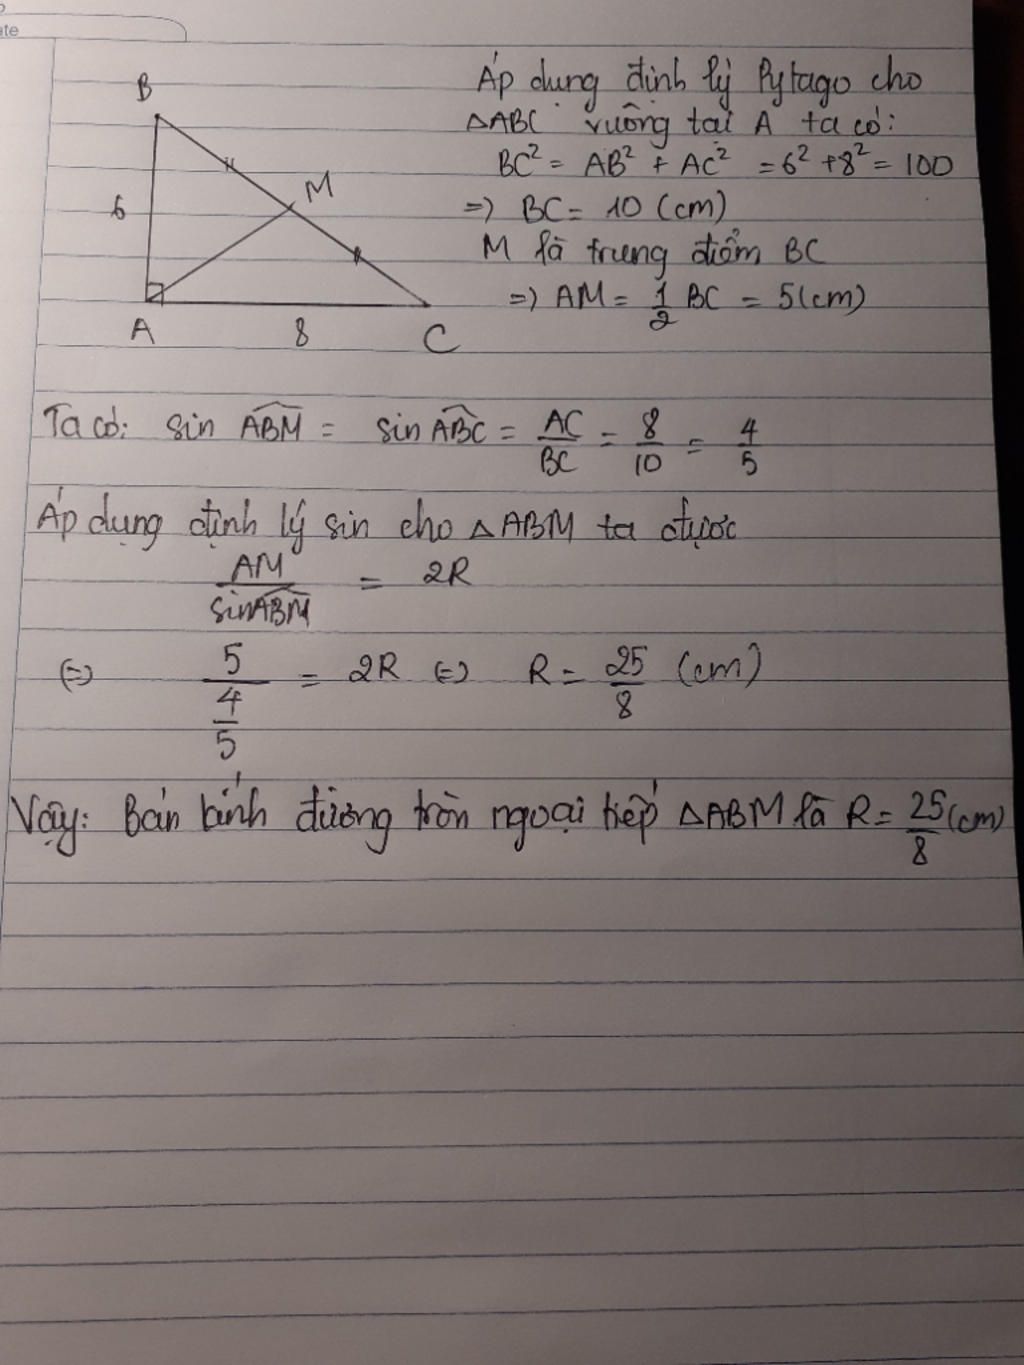 ate
B
M
6
A
8
C
Áp dụng định lý Pytago cho
△ABC vuông tại A ta có:
BC² = AB² + AC² = 6² + 8² = 100
=> BC = 10 (cm)
M là trung điểm BC
=> AM = 1/2 BC = 5(cm)
Ta có: sin ABM = sin ABC = AC/BC = 8/10 = 4/5
Áp dụng định lý sin cho △ABM ta được
AM/sinABM = 2R
(=) 5/(4/5) = 2R (=) R = 25/8 (cm)
Vậy: Bán kính đường tròn ngoại tiếp △ABM là R = 25/8 (cm)